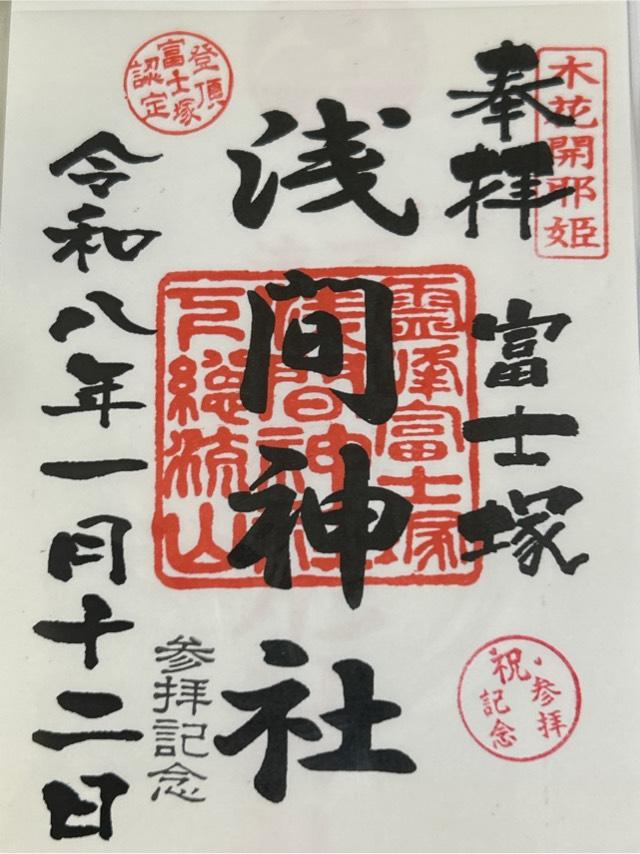 木花開耶姫
奉拝
富士塚
浅間神社
霊峰富士塚
浅間神社
下総流山
登頂
富士塚
認定
令和八年一月十二日
参拝記念
祝
参拝
記念